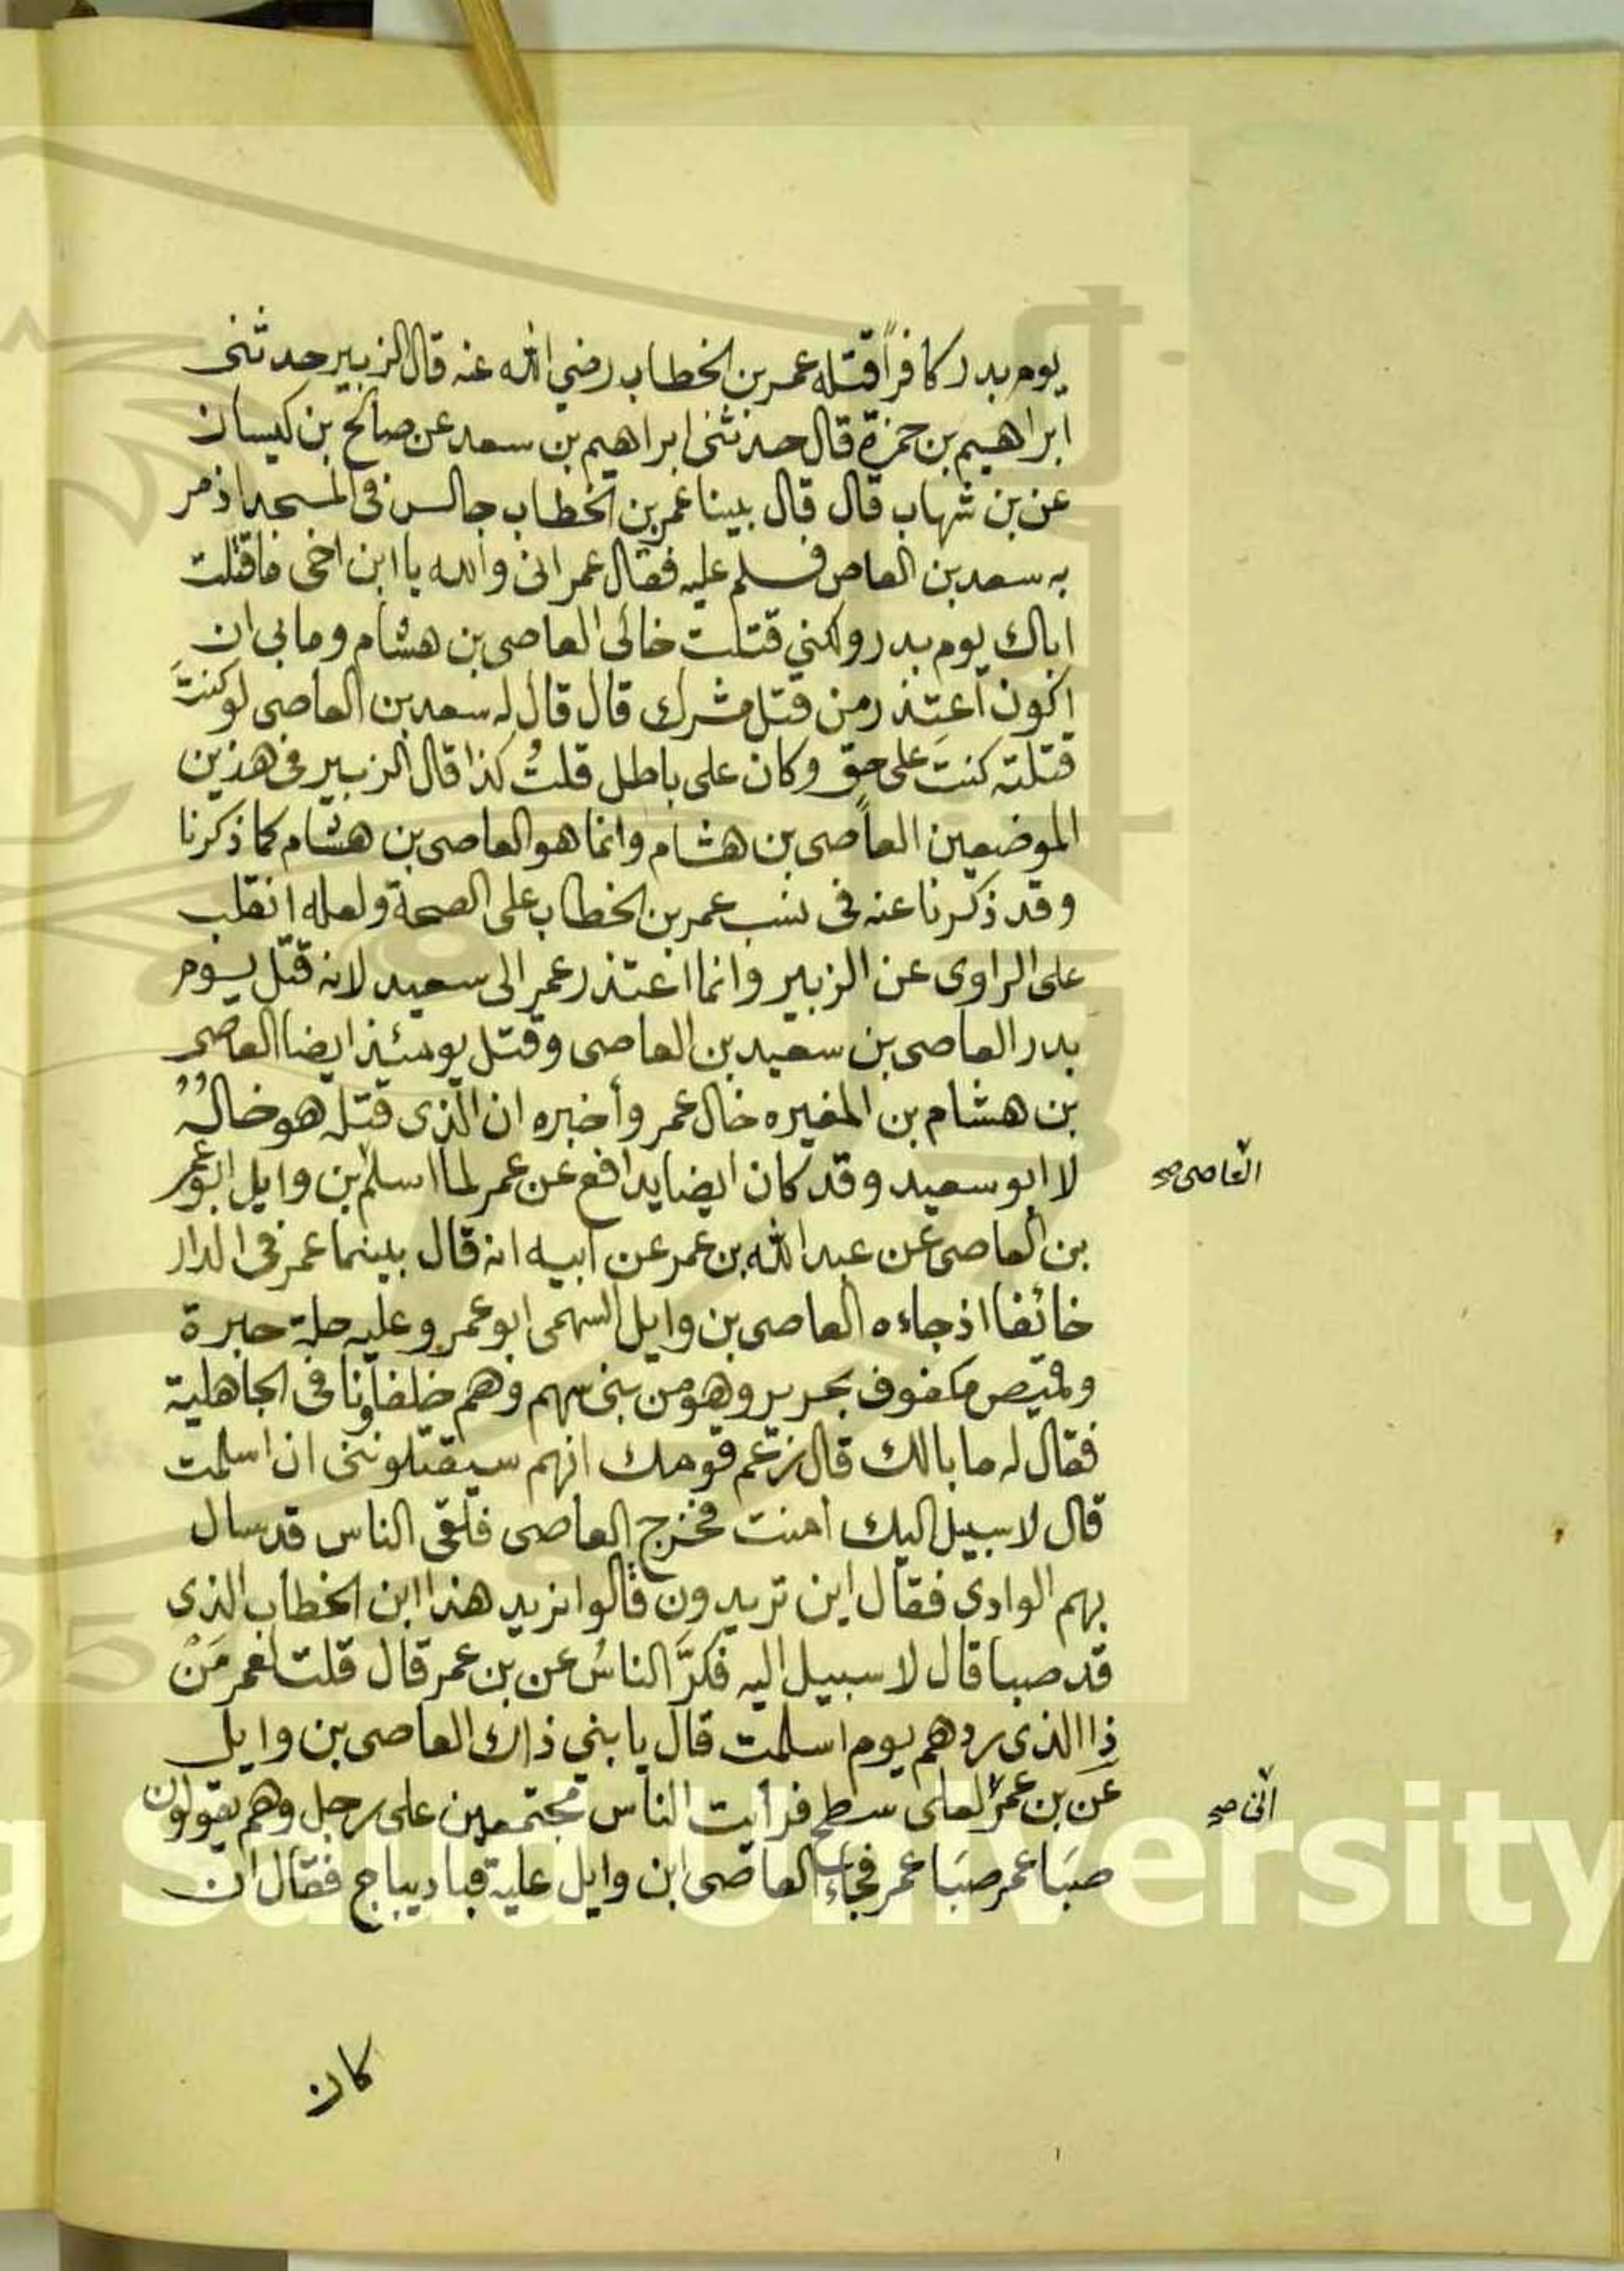 يوم بدر كافراً قتله عمر بن الخطاب رضي الله عنه قال الزبير حدثنى
ابراهيم بن حمزة قال حدثنى ابراهيم بن سعد عن صالح بن كيسان
عن بن شهاب قال قال بينا عمر بن الخطاب جالس فى المسجد اذ مر
به سعد بن العاص فسلم عليه فقال عمر انى والله يا ابن اخى ما قتلت
اباك يوم بدر ولكني قتلت خالى العاصى بن هشام وما بى ان
اكون اعتذر من قتل مشرك قال قال له سعد بن العاصى لو كنتَ
قتلته كنتَ على حق وكان على باطل قلتُ كذا قال الزبير فى هذين
الموضعين العاصى بن هشام وانما هو العاصى بن هشام كما ذكرنا
وقد ذكرنا عنه فى نسب عمر بن الخطاب على الصحة ولعله انقلب
على الراوى عن الزبير وانما اعتذر عمر الى سعيد لانه قتل يوم
بدر العاصى بن سعيد بن العاصى وقتل يومئذ ايضا العاصى
بن هشام بن المغيره خال عمر وأخبره ان الذى قتله هو خالُهُ
لا ابو سعيد وقد كان ايضا يدافع عن عمر لما اسلم بن وايل ابو عمر
العاصى صح
بن العاصى عن عبد الله بن عمر عن ابيه انه قال بينما عمر فى الدار
خائفا اذ جاءه العاصى بن وايل السهمى ابو عمرو وعليه حلة حبرة
وقميص مكفوف بحرير وهو من بنى سهم وهم حلفاؤنا فى الجاهلية
فقال له ما بالك قال زعم قومك انهم سيقتلوننى ان اسلمت
قال لا سبيل اليك امنت فخرج العاصى فلقى الناس قد سال
بهم الوادى فقال اين تريدون قالوا نريد هذا ابن الخطاب الذى
قد صبا قال لا سبيل اليه فكرَّ الناسُ عن بن عمر قال قلت لعمر مَنْ
ذا الذى ردهم يوم اسلمت قال يا بني ذاك العاصى بن وايل
عن بن عمر لعلى سطح فرأيت الناس مجتمعين على رجل وهم يقولون
انى صح
صبَا عمر صبَا عمر فجاء العاصى ابن وايل عليه قبا ديباج فقال ان
كان